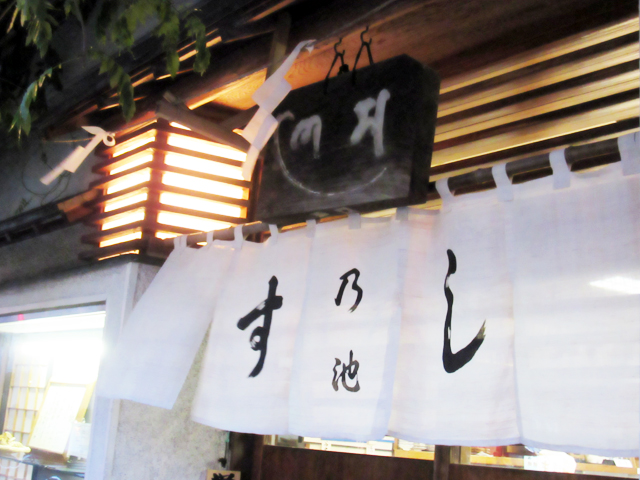 す
乃池
し